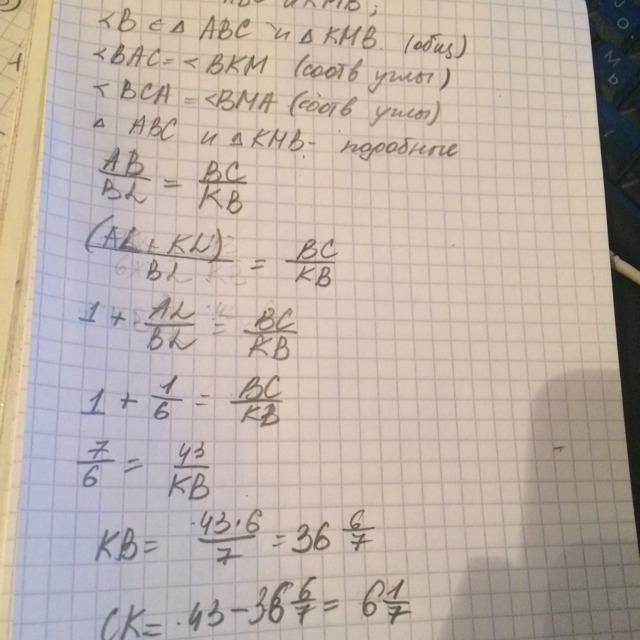 ABC и KMB,
<B с △ ABC и △ KMB. (общ)
<BAC=<BKM (соотв углы)
<BCA=<BMA (соотв углы)
△ ABC и △KMB- подобные
AB/BL = BC/KB
(AL+KL)/BL = BC/KB
1 + AL/BL = BC/KB
1 + 1/6 = BC/KB
7/6 = 43/KB
KB= 43·6/7 = 36 6/7
CK= 43-36 6/7 = 6 1/7